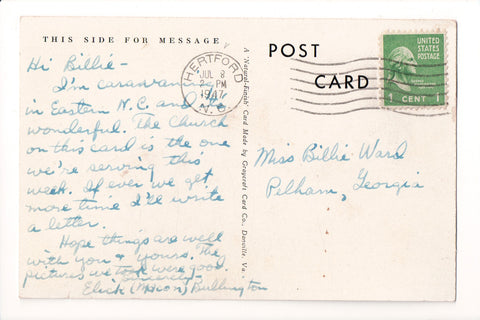 THIS SIDE FOR MESSAGE
Hi Billie -
I'm caravaning
in Eastern N.C. and
wonderful. The Church
on this card is the one
we're serving this
week. If ever we get
more time I'll write
a letter.
Hope things are well
with you & yours. The
pictures we took were good.
Sincerely -
Elick Bullington
A 'Natural-Finish' Card Made by Graycraft Card Co., Danville, Va.
HERTFORD
JUL 8
2 PM
1947
N.C.
POST
CARD
UNITED
STATES
POSTAGE
1 CENT 1
Miss Billie Ward
Pelham, Georgia